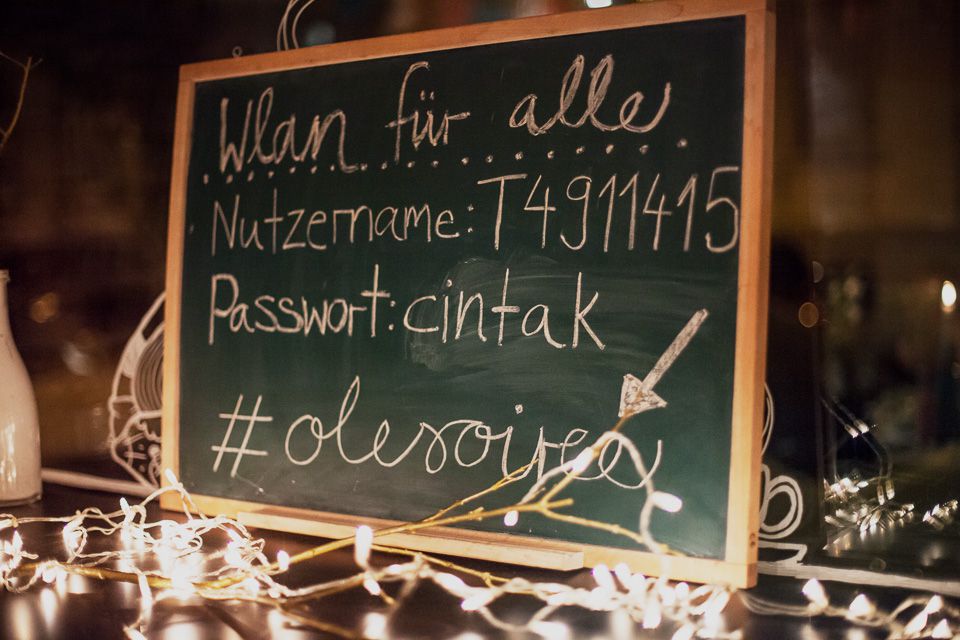 Wlan für alle
Nutzername: T4911415
Passwort: cintak
#olesoiree